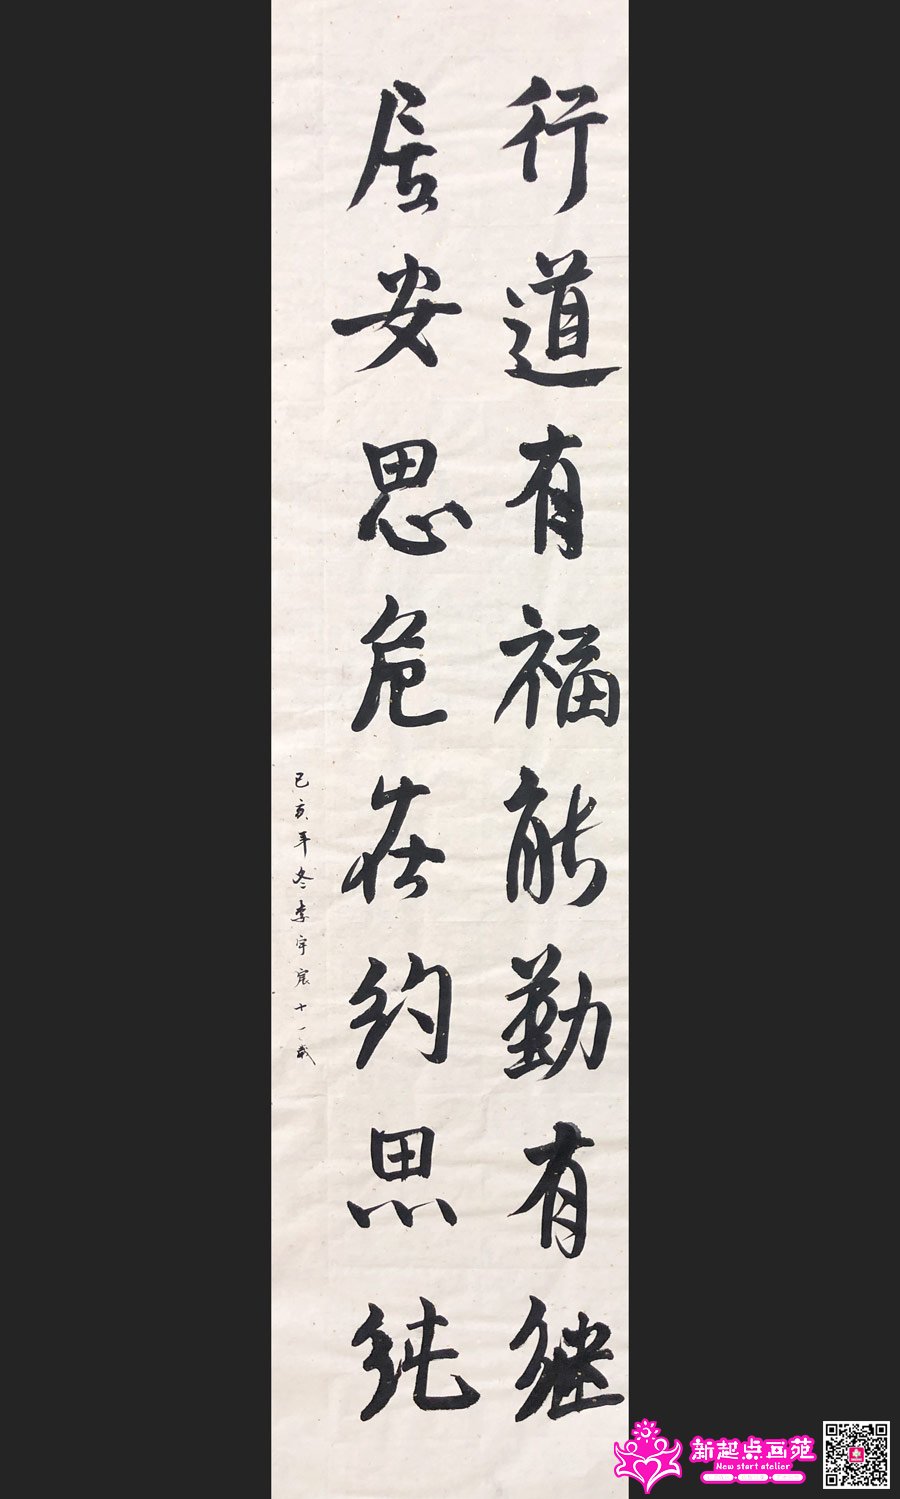 行道有福能勤有继
居安思危在约思纯
己亥年冬李宇宸十一歲
新起点画苑
New start atelier